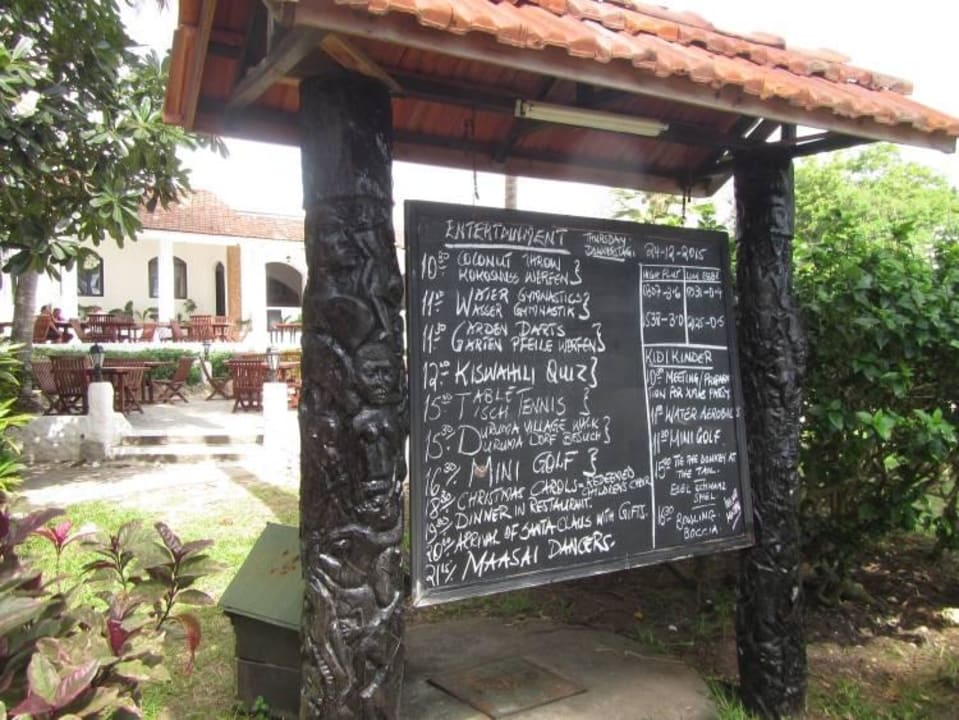 ENTERTAINMENT THURSDAY 24-12-2015
DONNERSTAG
10³⁰ COCONUT THROW }
KOKOSNUSS WERFEN }
11⁰⁰ WATER GYMNASTICS }
WASSER GYMNASTIK }
11³⁰ GARDEN DARTS }
GARTEN PFEILE WERFEN }
12¹⁵ KISWAHILI QUIZ }
15⁰⁰ TABLE TENNIS }
TISCH
15³⁰ DURUMA VILLAGE WALK }
DURUMA DORF BESUCH }
16³⁰ MINI GOLF }
CHRISTMAS CAROLS = REDEEMED
CHILDRENS CHOIR
19³⁰ DINNER IN RESTAURANT.
ARRIVAL OF SANTA CLAUS WITH GIFTS.
21¹⁵ MAASAI DANCERS.
HIGH FLUT LOW EBBE
1538-3.0 2125-0.5
KIDI KINDER
10³⁰ MEETING/PREPARA
TION FOR XMAS PARTY
11⁰⁰ WATER AEROBICS
11³⁰ MINI GOLF
15⁰⁰ TIE THE DONKEY AT
THE TAIL.
ESEL SCHWANZ
SPIEL
16³⁰ BOWLING
BOCCIA